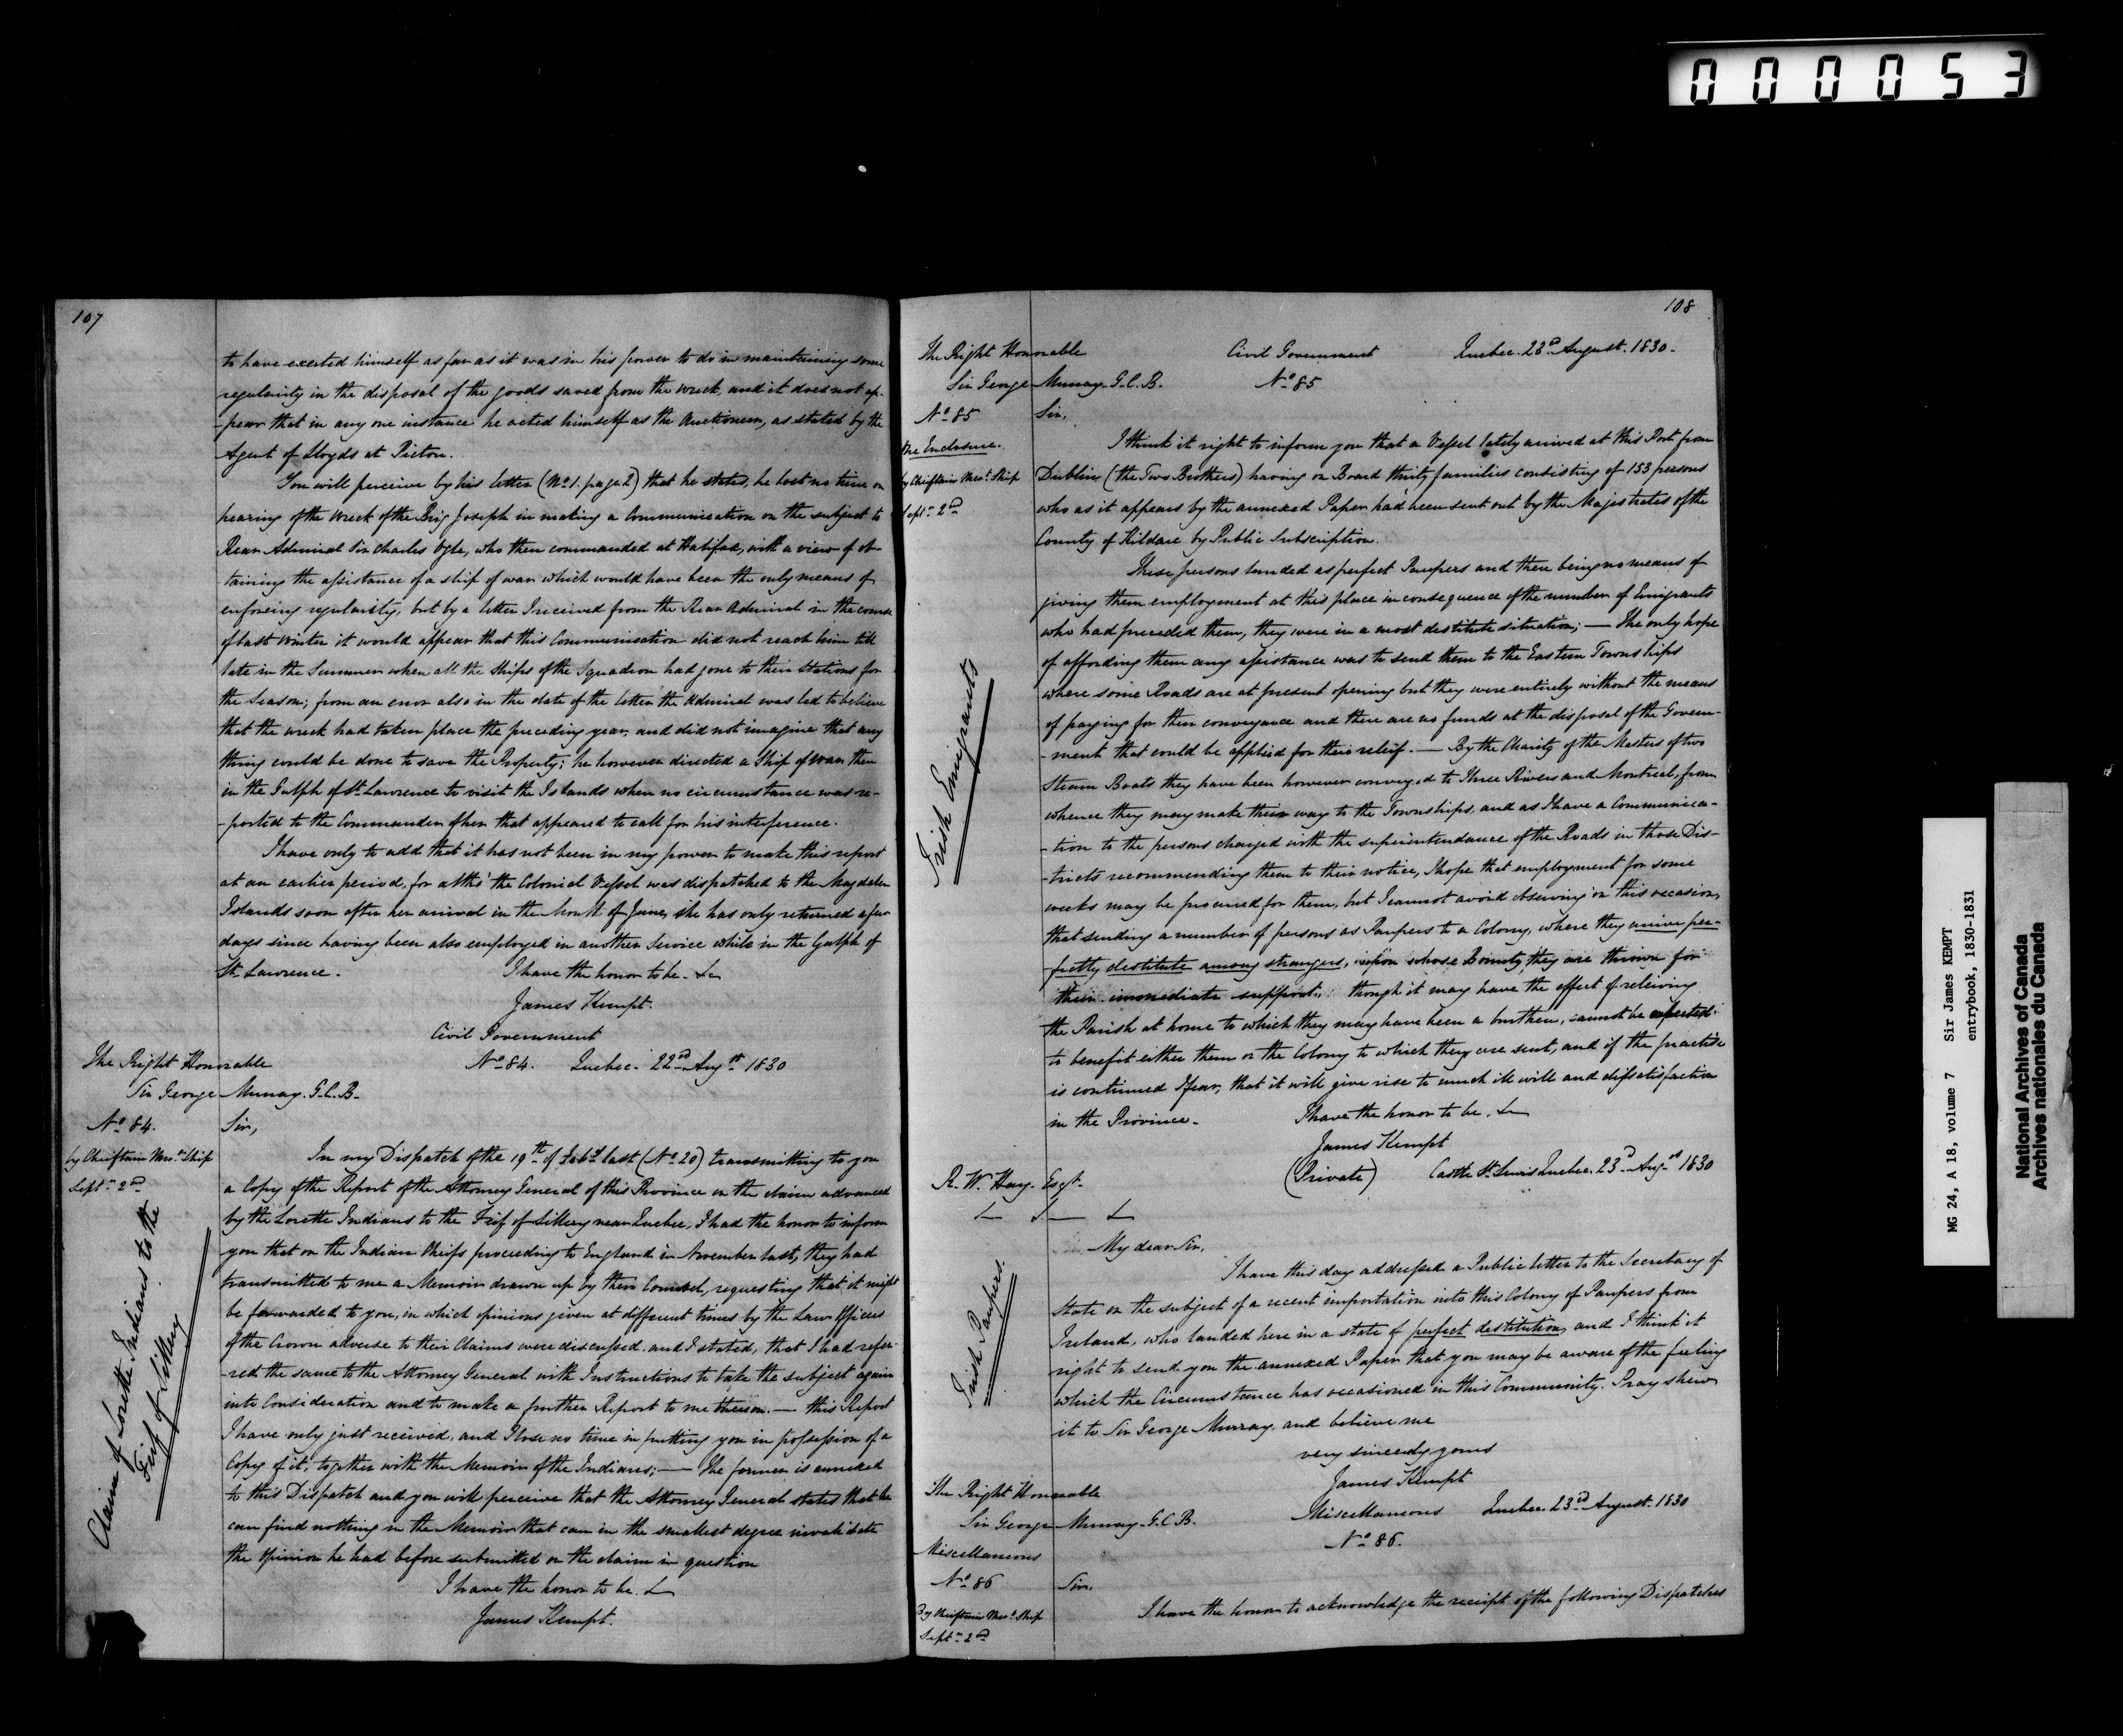 000053
107
to have exerted himself as far as it was in his power to do in maintaining some
regularity in the disposal of the goods saved from the wreck, and it does not ap-
-pear that in any one instance he acted himself as the Auctioneer, as stated by the
Agent of Lloyds at Pictou.
You will perceive by his letter (No. 1. page 2) that he states, he lost no time on
hearing of the wreck of the Brig Joseph in making a Communication on the subject to
Rear Admiral Sir Charles Ogle, who then commanded at Halifax, with a view of ob-
taining the assistance of a ship of war which would have been the only means of
enforcing regularity, but by a letter I received from the Rear Admiral in the course
of last Winter it would appear that this Communication did not reach him till
late in the Summer when all the Ships of the Squadron had gone to their Stations for
the Season; from an error also in the date of the letter the Admiral was led to believe
that the wreck had taken place the preceding year, and did not imagine that any
thing could be done to save the Property; he however directed a Ship of War then
in the Gulph of St. Lawrence to visit the Islands when no circumstance was re-
-ported to the Commander of her that appeared to call for his interference.
I have only to add that it has not been in my power to make this report
at an earlier period, for altho' the Colonial Vessel was dispatched to the Magdalen
Islands soon after her arrival in the Month of June, she has only returned a few
days since having been also employed in another Service while in the Gulph of
St. Lawrence. I have the honor to be. &c
James Kempt.
Civil Government
The Right Honorable No. 84. Quebec. 22nd Augst 1830
Sir George Murray. G.C.B.
No. 84. Sir,
by Chieftain Mert. Ship
Septr. 2nd
Claim of Lorette Indians to the
Fief of Sillery
In my Dispatch of the 19th of Feby last (No. 20) transmitting to you
a Copy of the Report of the Attorney General of this Province on the claim advanced
by the Lorette Indians to the Fief of Sillery near Quebec, I had the honor to inform
you that on the Indian Chiefs proceeding to England in November last, they had
transmitted to me a Memoir drawn up by their Counsel, requesting that it might
be forwarded to you, in which opinions given at different times by the Law Officers
of the Crown adverse to their Claims were discussed. and I stated, that I had refer-
-red the same to the Attorney General with Instructions to take the subject again
into Consideration and to make a further Report to me thereon. — this Report
I have only just received, and I lose no time in putting you in possession of a
Copy of it, together with the Memoir of the Indians; — The former is annexed
to this Dispatch and you will perceive that the Attorney General states that he
can find nothing in the Memoir that can in the smallest degree invalidate
the Opinion he had before submitted on the claim in question
I have the honor to be. &
James Kempt.
108
The Right Honorable Civil Government Quebec. 23rd August. 1830.
Sir George Murray G.C.B. No. 85
No. 85 Sir.
One Enclosure.
by Chieftain Mert. Ship
Septr. 2nd
Irish Emigrants
I think it right to inform you that a Vessel lately arrived at this Port from
Dublin (the Two Brothers) having on Board thirty families consisting of 153 persons
who as it appears by the annexed Paper had been sent out by the Magistrates of the
County of Kildare by Public Subscription.
These persons landed as perfect Paupers and there being no means of
giving them employment at this place in consequence of the number of Emigrants
who had preceded them, they were in a most destitute situation; — The only hope
of affording them any assistance was to send them to the Eastern Townships
where some Roads are at present opening but they were entirely without the means
of paying for their conveyance and there are no funds at the disposal of the Govern-
-ment that could be applied for their relief. — By the Charity of the Masters of two
Steam Boats they have been however conveyed to Three Rivers and Montreal, from
whence they may make their way to the Townships, and as I have a Communica-
-tion to the persons charged with the superintendance of the Roads in those Dis-
-tricts recommending them to their notice, I hope that employment for some
weeks may be procured for them, but I cannot avoid observing on this occasion,
that sending a number of persons as Paupers to a Colony, where they arrive per-
-fectly destitute among strangers, upon whose Bounty they are thrown for
their immediate support, though it may have the effect of relieving
the Parish at home to which they may have been a burthen, cannot be expected
to benefit either them or the Colony to which they are sent, and if the practise
is continued I fear, that it will give rise to much ill will and dissatisfaction
in the Province. I have the honor to be. &c
James Kempt
R. W. Hay. Esqr. (Private) Castle St. Lewis Quebec. 23rd Augst 1830
& & &
My dear Sir,
Irish Paupers.
I have this day addressed a Public letter to the Secretary of
State on the subject of a recent importation into this Colony of Paupers from
Ireland, who landed here in a state of perfect destitution, and I think it
right to send you the annexed Paper that you may be aware of the feeling
which the Circumstance has occasioned in this Community. Pray shew
it to Sir George Murray, and believe me
very sincerely yours
James Kempt
The Right Honorable
Sir George Murray. G.C.B. Miscellaneous Quebec. 23rd August. 1830
Miscellaneous No. 86.
No. 86 Sir.
By Chieftain Mert. Ship
Septr. 2nd
I have the honor to acknowledge the receipt of the following Dispatches
MG 24, A 18, volume 7 Sir James KEMPT
entrybook, 1830-1831
National Archives of Canada
Archives nationales du Canada